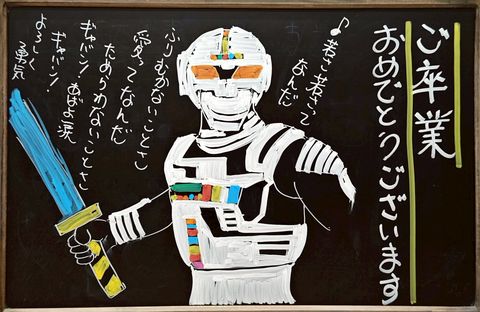 ご卒業
おめでとうございます
♪若さ若さって
なんだ
ふりむかないことさ
愛ってなんだ
ためらわないことさ
ギャバン! あばよ涙
ギャバン!
よろしく勇気